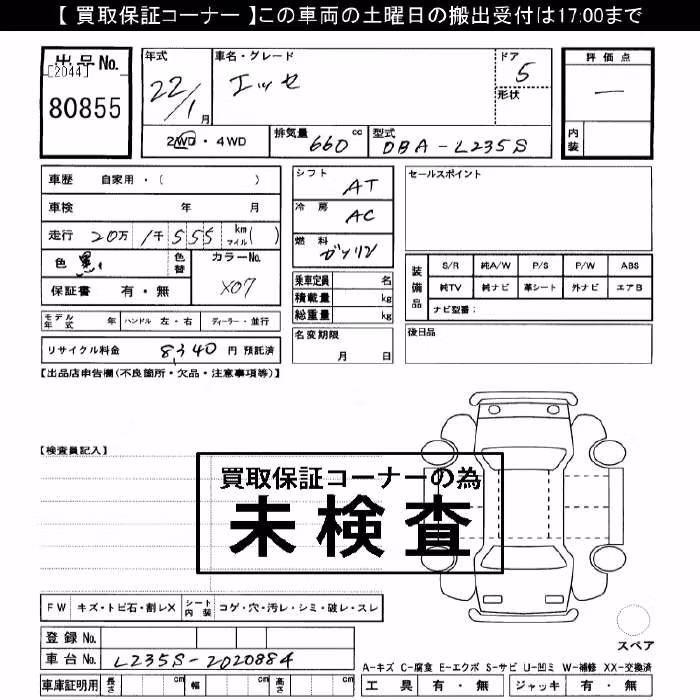 【 買取保証コーナー 】この車両の土曜日の搬出受付は17:00まで
出品No.
[2044]
80855
年式
22/1月
車名・グレード
エッセ
ドア
5
形状
評価点
一
内装
2WD・4WD
排気量 660 cc
型式 DBA-L235S
車歴 自家用・( )
車検 年 月
走行 20万 1千 555 km マイル( )
色 黒
色替
カラーNo.
X07
保証書 有・無
モデル年式 年
ハンドル 左・右
ディーラー・並行
リサイクル料金 8,340 円 預託済
シフト AT
冷房 AC
燃料 ガソリン
乗車定員 名
積載量 kg
総重量 kg
名変期限
月 日
セールスポイント
装備品
S/R 純A/W P/S P/W ABS
純TV 純ナビ 革シート 外ナビ エアB
ナビ型番：
後日品
【出品店申告欄(不良箇所・欠品・注意事項等)】
【検査員記入】
買取保証コーナーの為
未検査
FW キズ・トビ石・割レX
シート内装 コゲ・穴・汚レ・シミ・破レ・スレ
登録No.
車台No. L235S-2020884
車庫証明用 長さ cm 幅 cm 高さ cm
スペア
A-キズ C-腐食 E-エクボ S-サビ U-凹ミ W-補修 XX-交換済
工具 有・無 ジャッキ 有・無